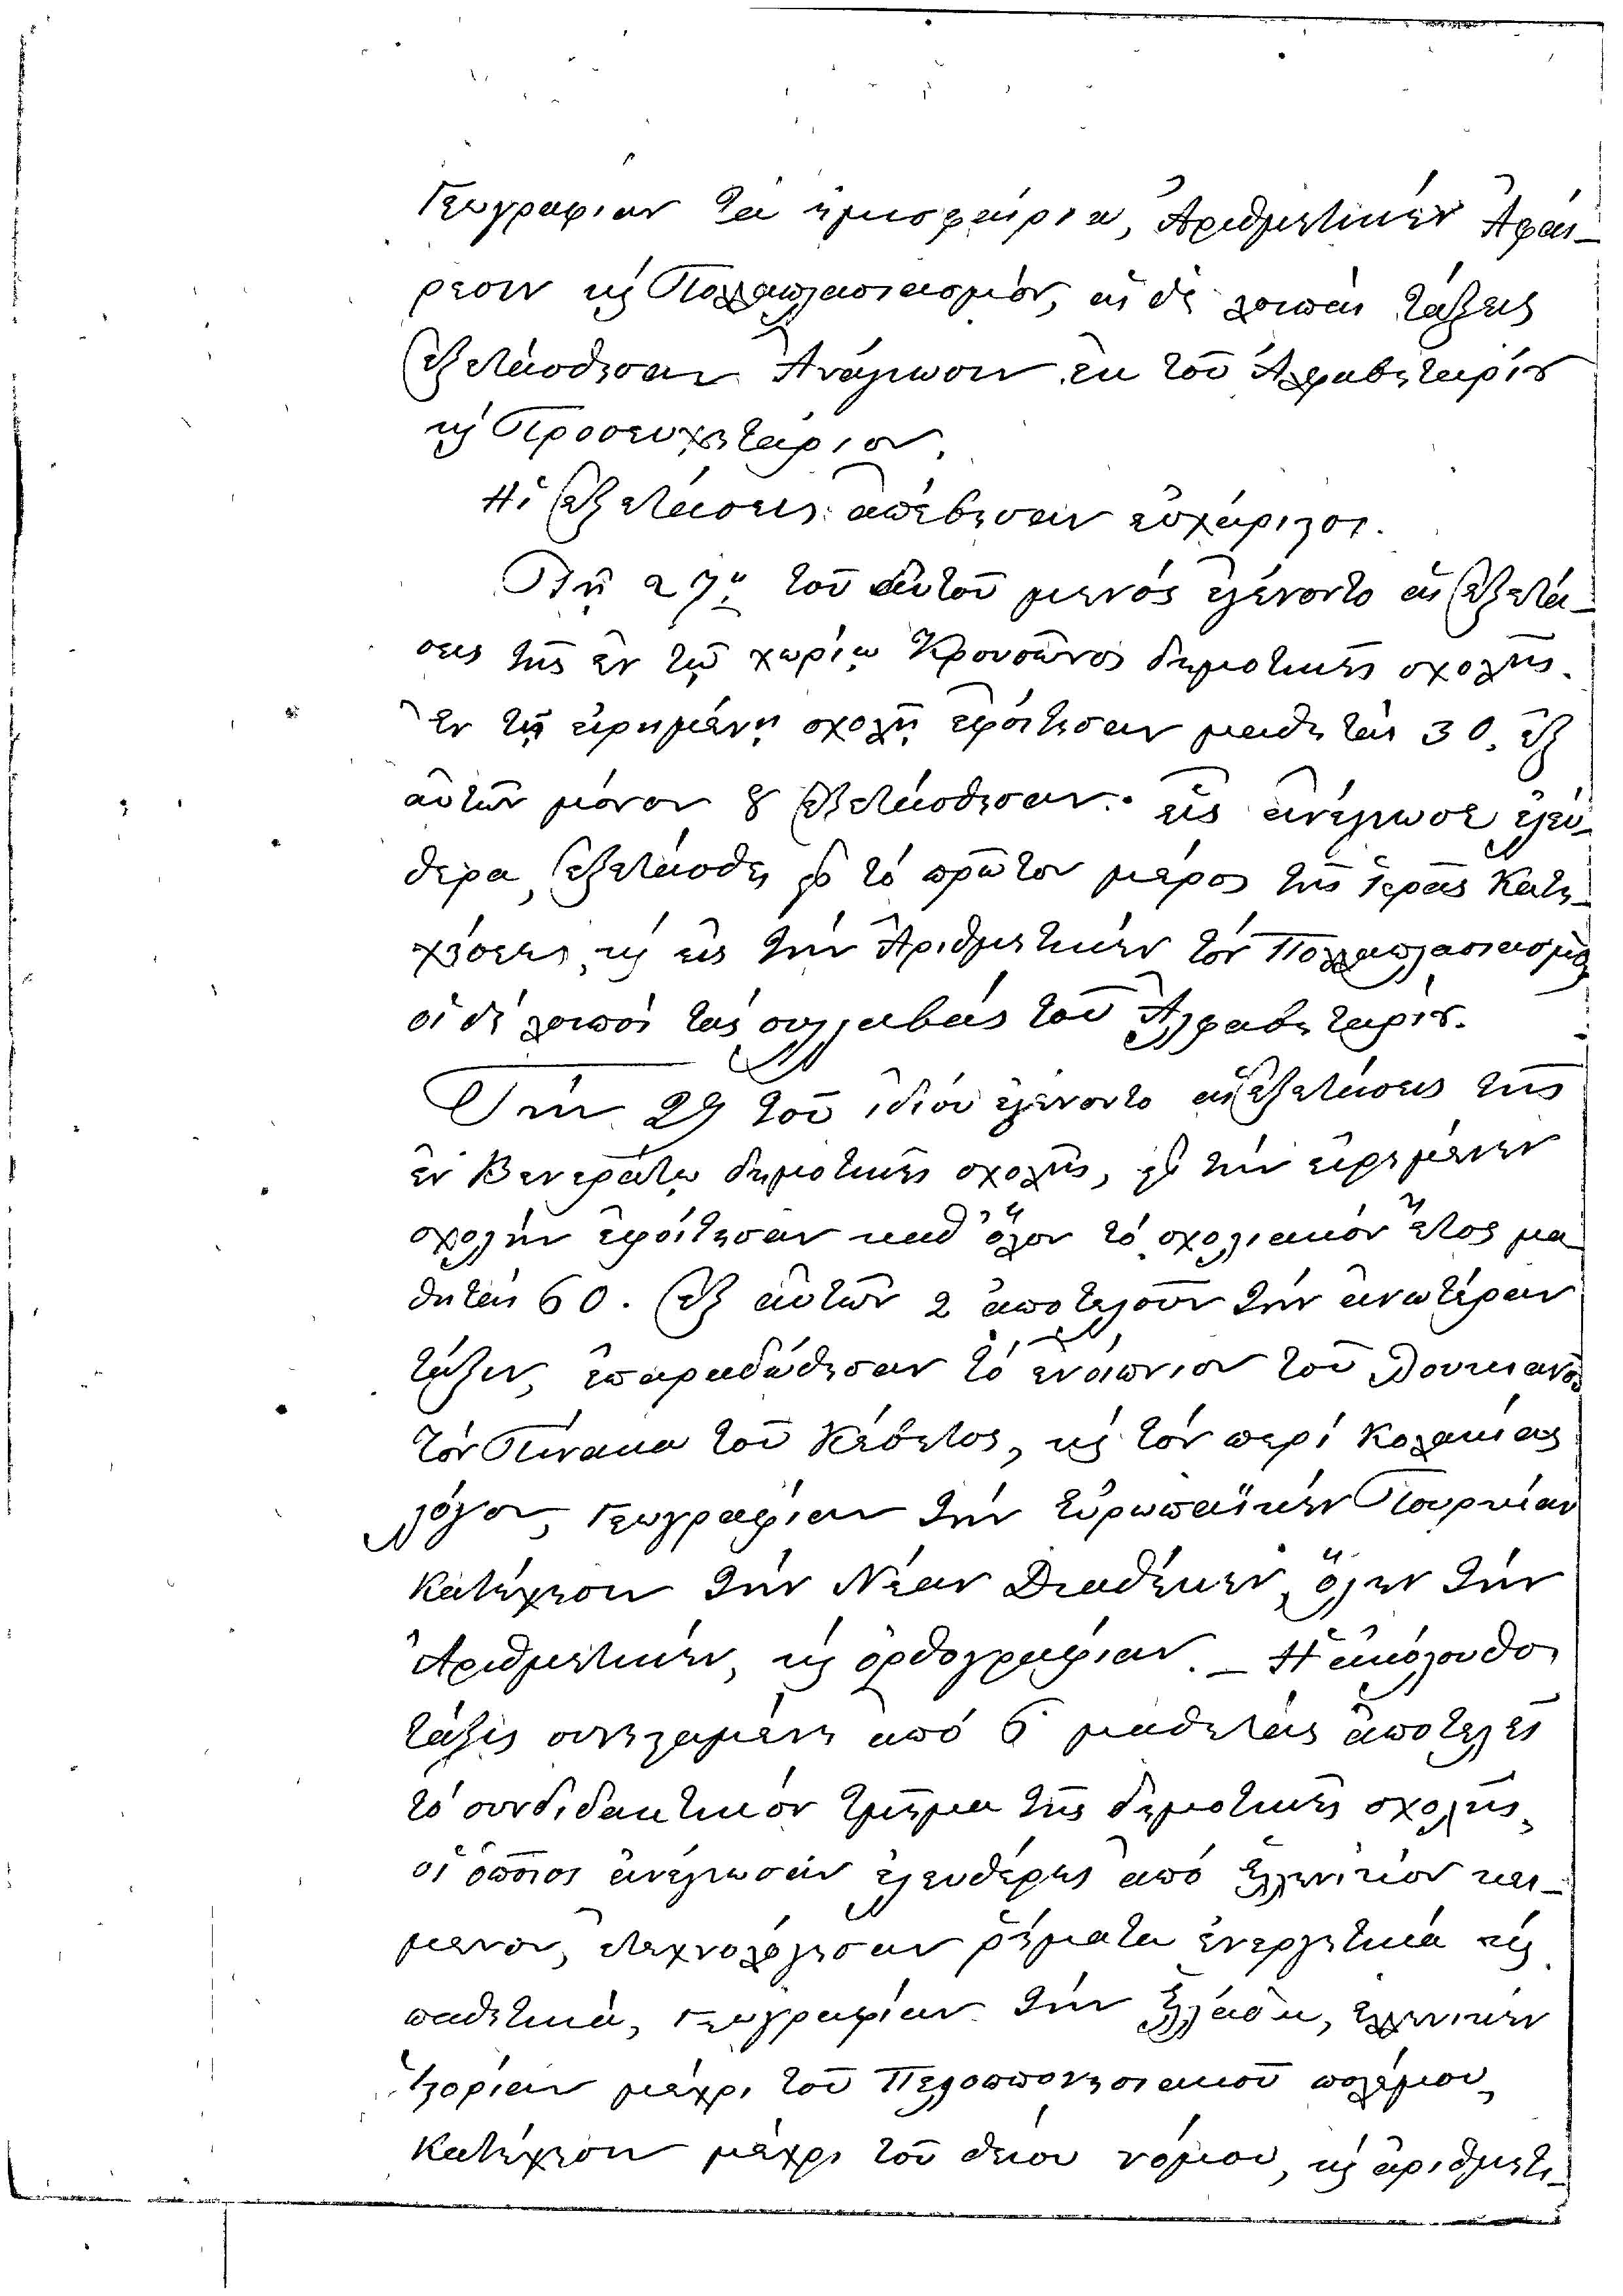 Γεωγραφίαν τὰ ἡμισφαίρια, Ἀριθμητικὴν Ἀφαί-
ρεσιν καὶ Πολλαπλασιασμόν, αἱ δὲ λοιπαὶ τάξεις
ἐξετάσθησαν Ἀνάγνωσιν ἐκ τοῦ Ἀλφαβηταρίου
καὶ Προσευχητάριον.
Αἱ ἐξετάσεις ἀπέβησαν εὐχάριστοι.
Τῇ 27ῃ τοῦ αὐτοῦ μηνὸς ἐγένοντο αἱ ἐξετά-
σεις τῆς ἐν τῷ χωρίῳ Κρουσῶνος δημοτικῆς σχολῆς.
Ἐν τῇ εἰρημένῃ σχολῇ ἐφοίτησαν μαθηταὶ 30, ἐξ
αὐτῶν μόνον 8 ἐξετάσθησαν· εἷς ἀνέγνωσε ἐλεύ-
θερα, ἐξετάσθη εἰς τὸ πρῶτον μέρος τῆς Ἱερᾶς Κατη-
χήσεως, καὶ εἰς τὴν Ἀριθμητικὴν τὸν Πολλαπλασιασμὸ
οἱ δὲ λοιποὶ τὰς συλλαβὰς τοῦ Ἀλφαβηταρίου.
Τὴν 29 τοῦ ἰδίου ἐγένοντο αἱ ἐξετάσεις τῆς
ἐν Βενεράτῳ δημοτικῆς σχολῆς, εἰς τὴν εἰρημένην
σχολὴν ἐφοίτησαν καθ' ὅλον τὸ σχολιακὸν ἔτος μα-
θηταὶ 60. Ἐξ αὐτῶν 2 ἀποτελοῦν τὴν ἀνωτέραν
τάξιν, ἐπαραδόθησαν τὸ ἐνύπνιον τοῦ Λουκιανοῦ
τὸν Πίνακα τοῦ Κέβητος, καὶ τὸν περὶ Κολακίας
λόγον, Γεωγραφίαν τὴν Εὐρωπαϊκὴν Τουρκίαν
Κατήχησιν τὴν Νέαν Διαθήκην, ὅλην τὴν
Ἀριθμητικήν, καὶ ὀρθογραφίαν. _ Ἡ ἀκόλουθο
τάξις συνισταμένη ἀπὸ 6 μαθητὰς ἀποτελεῖ
τὸ συνδιδακτικὸν τμῆμα τῆς δημοτικῆς σχολῆς,
οἱ ὁποῖοι ἀνέγνωσαν ἐλευθέρως ἀπὸ Ἑλληνικὸν κεί-
μενον, ἐτεχνολόγησαν ῥήματα ἐνεργητικὰ καὶ
παθητικά, Γεωγραφίαν τὴν Ἑλλάδα, Ἑλληνικὴν
Ἱστορίαν μέχρι τοῦ Πελοποννησιακοῦ πολέμου,
Κατήχησιν μέχρι τοῦ θείου νόμου, καὶ ἀριθμητι-